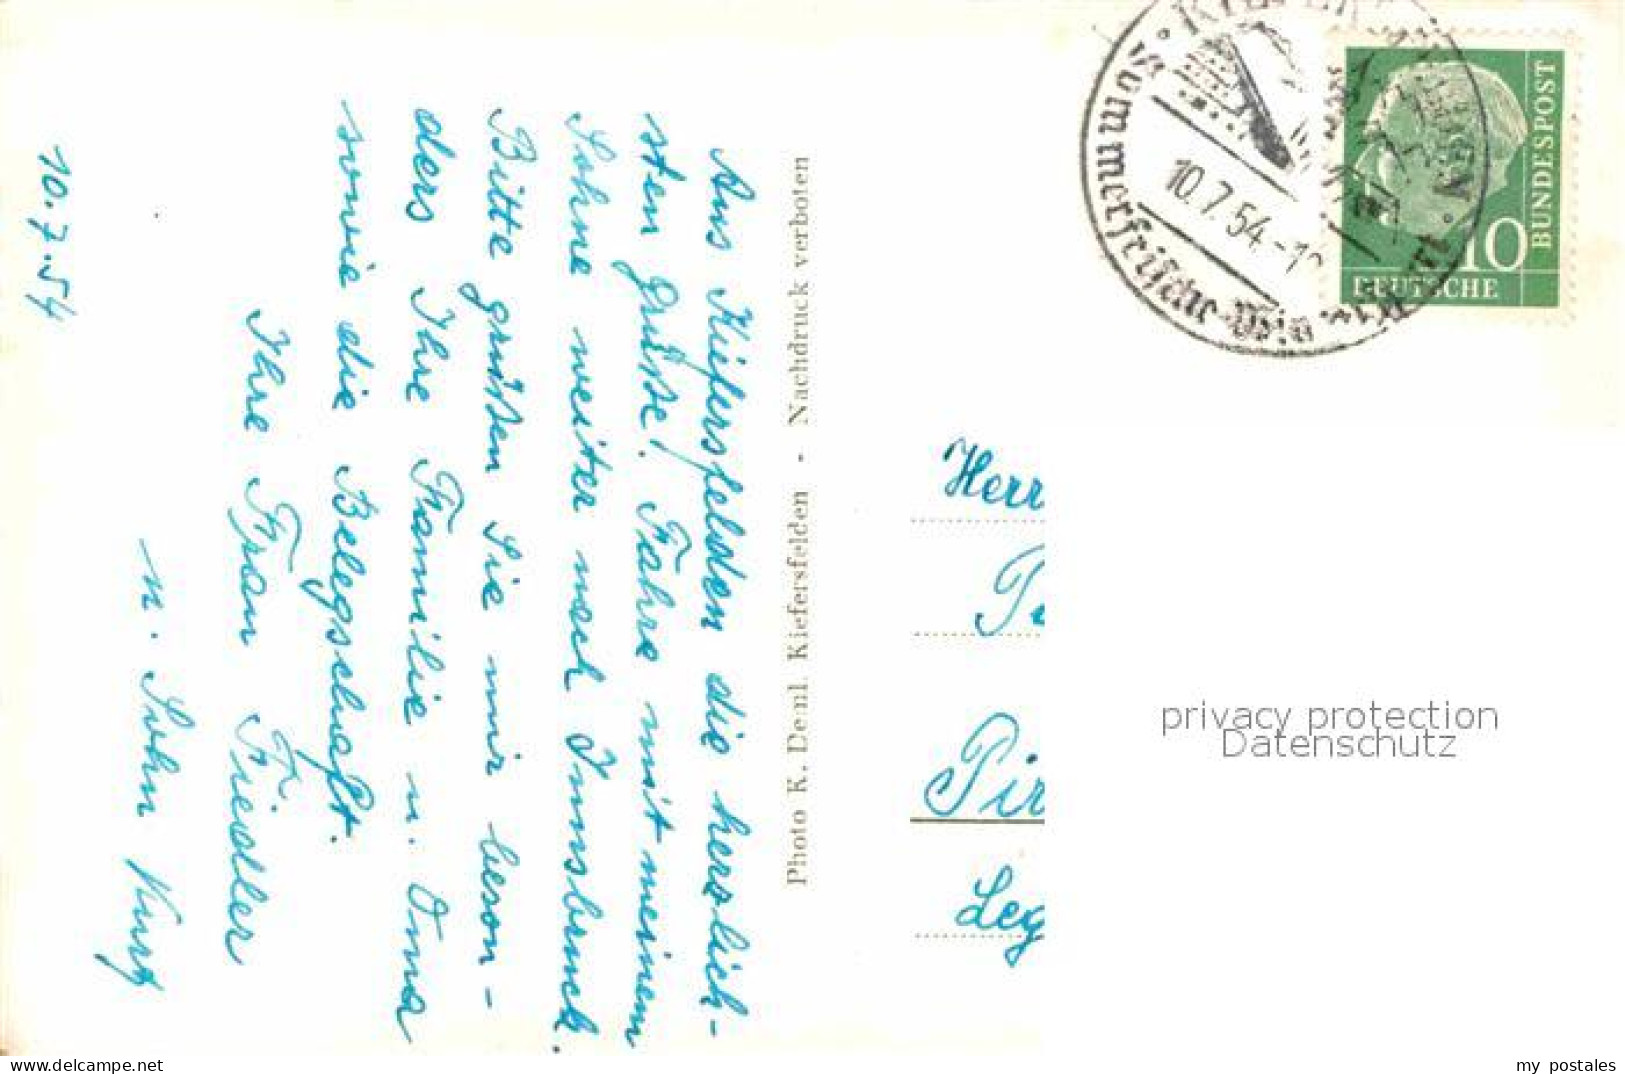 10.7.54
Aus Kiefersfelden die herzlich-
sten Grüße! Fahre mit meinem
Sohne weiter nach Innsbruck.
Bitte grüßen Sie mir beson-
ders Ihre Familie u. Oma
sowie die Belegschaft.
Ihre Frau Fiedler
u. Sohn Kurt
Photo K. Denl. Kiefersfelden - Nachdruck verboten
Sommerfrische
10.7.54.-1
DEUTSCHE
BUNDESPOST
10
Herr
Pir
Leg
privacy protection
Datenschutz
delcampe.net
my_postales